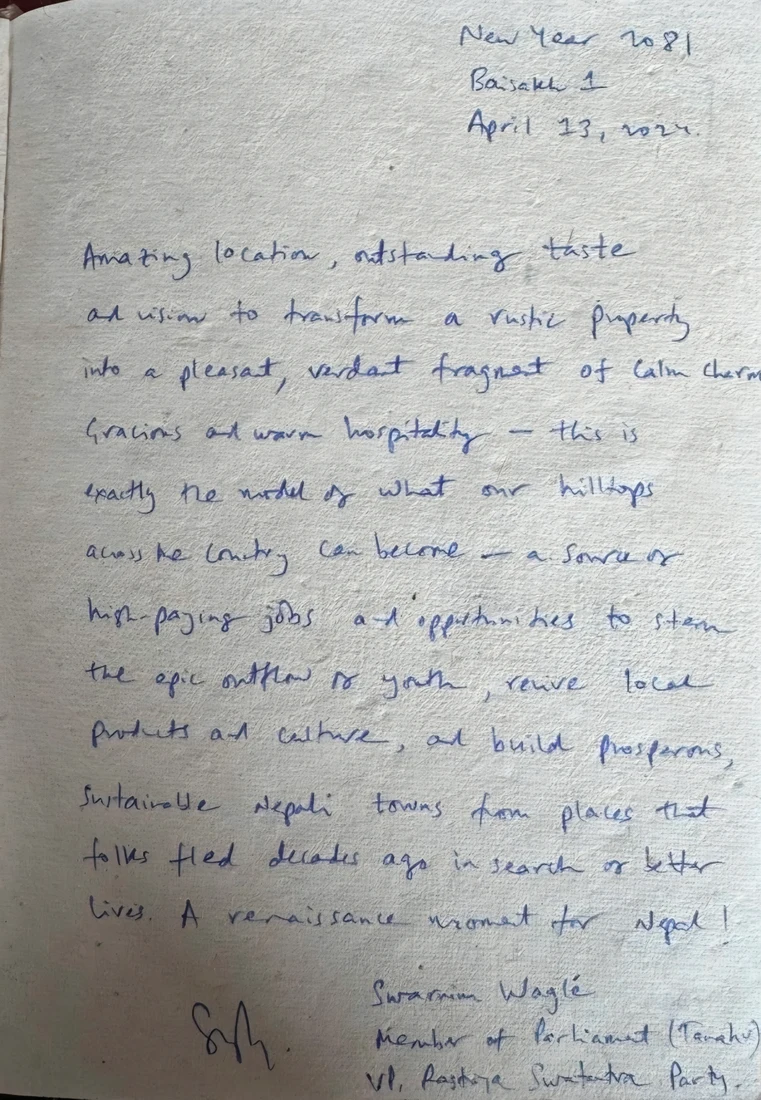 New Year 2081
Baisakh 1
April 13, 2024.
Amazing location, outstanding taste
and vision to transform a rustic property
into a pleasant, verdant fragment of calm charm
Gracious and warm hospitality — this is
exactly the model of what our hilltops
across the country can become — a source of
high-paying jobs and opportunities to stem
the epic outflow of youth, revive local
products and culture, and build prosperous,
sustainable Nepali towns from places that
folks fled decades ago in search of better
lives. A renaissance moment for Nepal!
Swarnim Waglé
Member of Parliament (Tanahu)
VP, Rastriya Swatantra Party.